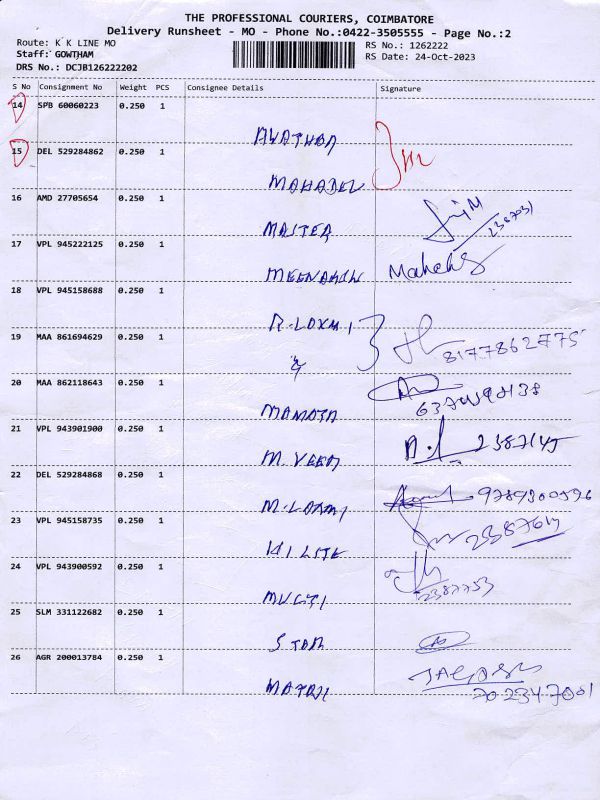 THE PROFESSIONAL COURIERS, COIMBATORE
Delivery Runsheet - MO - Phone No.:0422-3505555 - Page No.:2
Route: K K LINE MO
RS No.: 1262222
Staff: GOWTHAM
RS Date: 24-Oct-2023
DRS No.: DCJB126222202
S No Consignment No Weight PCS Consignee Details Signature
14 SPB 60060223 0.250 1
15 DEL 529284862 0.250 1
MAHADEV
16 AMD 27705654 0.250 1
MASTER
2387031
17 VPL 945222125 0.250 1
MEENAKSHI
18 VPL 945158688 0.250 1
R. LAXMI
19 MAA 861694629 0.250 1
&
8177862775
20 MAA 862118643 0.250 1
MAMATA
21 VPL 943901900 0.250 1
M. VEER
2387145
22 DEL 529284868 0.250 1
M. LAXMI
9789300596
23 VPL 945158735 0.250 1
HI LITE
24 VPL 943900592 0.250 1
2387753
25 SLM 331122682 0.250 1
STAR
26 AGR 200013784 0.250 1
702347001